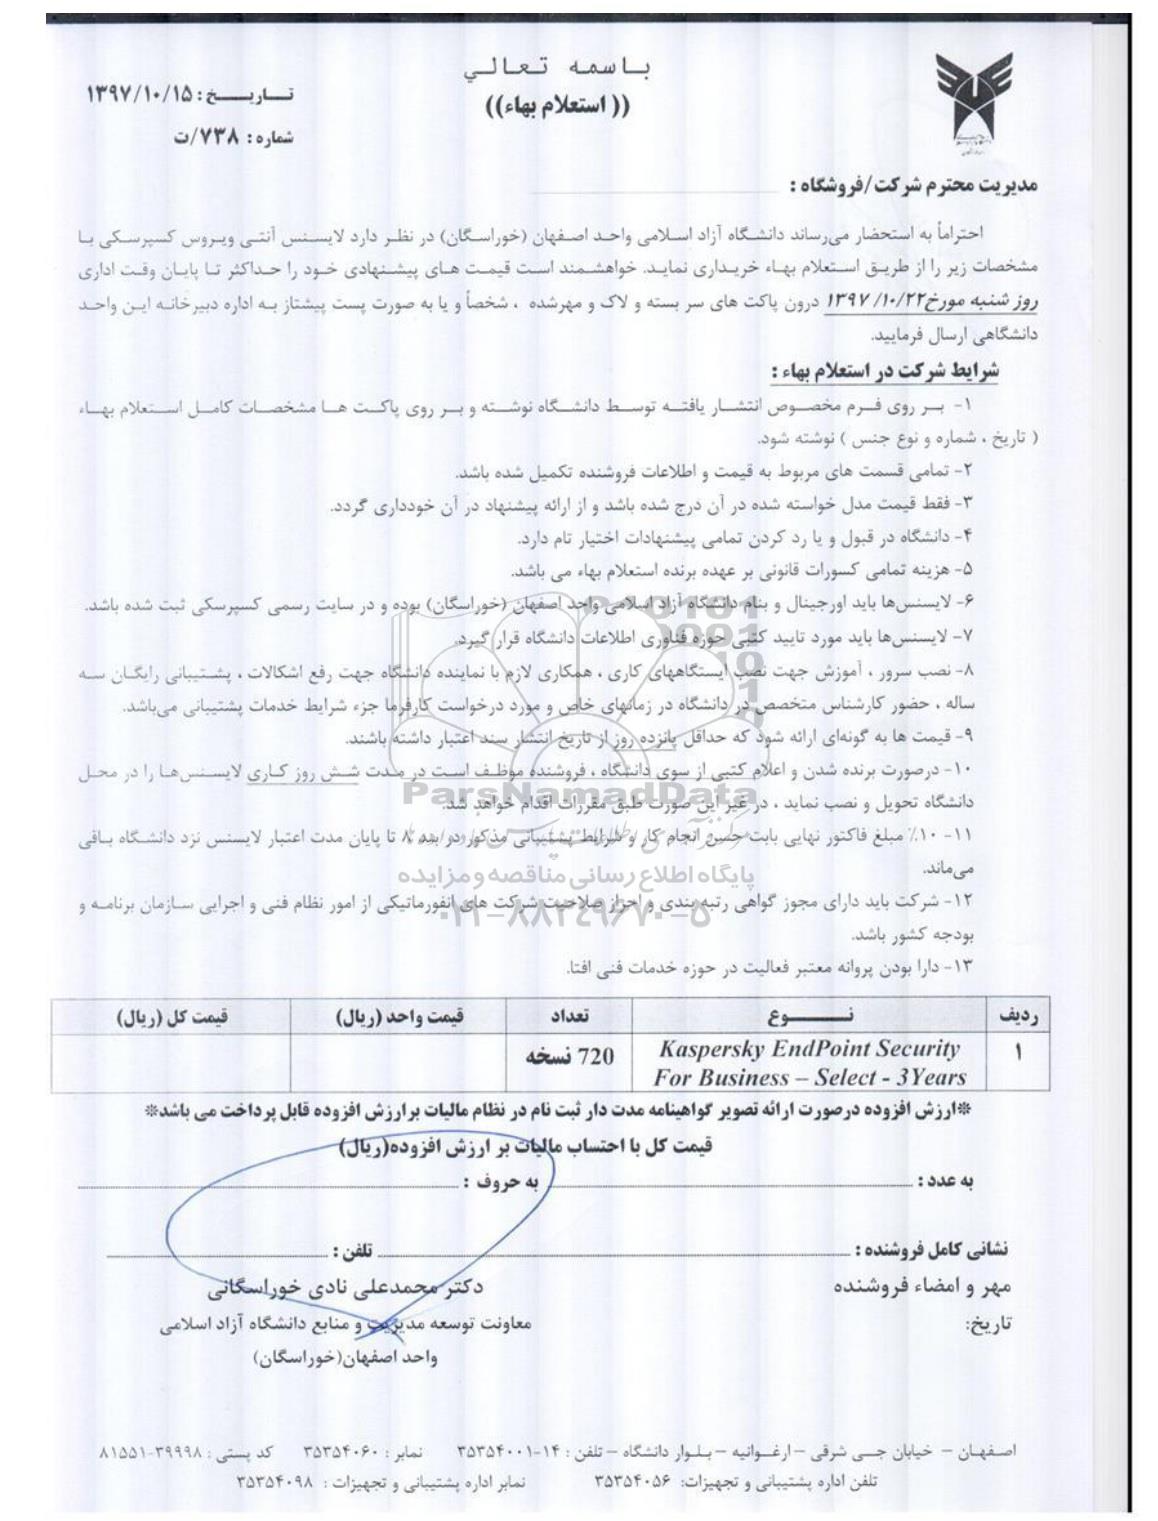 باسمه تعالي
(( استعلام بهاء))
تاریخ: ۱۳۹۷/۱۰/۱۵
شماره: ۷۳۸/ت
مدیریت محترم شرکت/فروشگاه :
احتراماً به استحضار می‌رساند دانشگاه آزاد اسلامی واحد اصفهان (خوراسگان) در نظر دارد لایسنس آنتی ویروس کسپرسکی با
مشخصات زیر را از طریق استعلام بهاء خریداری نماید. خواهشمند است قیمت های پیشنهادی خود را حداکثر تا پایان وقت اداری
روز شنبه مورخ۱۳۹۷/۱۰/۲۲ درون پاکت های سر بسته و لاک و مهرشده ، شخصاً و یا به صورت پست پیشتاز به اداره دبیرخانه این واحد
دانشگاهی ارسال فرمایید.
شرایط شرکت در استعلام بهاء :
۱- بر روی فرم مخصوص انتشار یافته توسط دانشگاه نوشته و بر روی پاکت ها مشخصات کامل استعلام بهاء
( تاریخ ، شماره و نوع جنس ) نوشته شود.
۲- تمامی قسمت های مربوط به قیمت و اطلاعات فروشنده تکمیل شده باشد.
۳- فقط قیمت مدل خواسته شده در آن درج شده باشد و از ارائه پیشنهاد در آن خودداری گردد.
۴- دانشگاه در قبول و یا رد کردن تمامی پیشنهادات اختیار تام دارد.
۵- هزینه تمامی کسورات قانونی بر عهده برنده استعلام بهاء می باشد.
۶- لایسنس‌ها باید اورجینال و بنام دانشگاه آزاد اسلامی واحد اصفهان (خوراسگان) بوده و در سایت رسمی کسپرسکی ثبت شده باشد.
۷- لایسنس‌ها باید مورد تایید کتبی حوزه فناوری اطلاعات دانشگاه قرار گیرد.
۸- نصب سرور ، آموزش جهت نصب ایستگاههای کاری ، همکاری لازم با نماینده دانشگاه جهت رفع اشکالات ، پشتیبانی رایگان سه
ساله ، حضور کارشناس متخصص در دانشگاه در زمانهای خاص و مورد درخواست کارفرما جزء شرایط خدمات پشتیبانی می‌باشد.
۹- قیمت ها به گونه‌ای ارائه شود که حداقل پانزده روز از تاریخ انتشار سند اعتبار داشته باشند.
۱۰- درصورت برنده شدن و اعلام کتبی از سوی دانشگاه ، فروشنده موظف است در مدت شش روز کاری لایسنس‌ها را در محل
دانشگاه تحویل و نصب نماید ، در غیر این صورت طبق مقررات اقدام خواهد شد.
ParsNamadData
۱۱- ۱۰٪ مبلغ فاکتور نهایی بابت حسن انجام کار و شرایط پشتیبانی مذکور در بند ۸ تا پایان مدت اعتبار لایسنس نزد دانشگاه باقی
می‌ماند.
پایگاه اطلاع رسانی مناقصه و مزایده
۱۲- شرکت باید دارای مجوز گواهی رتبه بندی و احراز صلاحیت شرکت های انفورماتیکی از امور نظام فنی و اجرایی سازمان برنامه و
۰۲۱-۸۸۳۴۹۶۷۰-۵
بودجه کشور باشد.
۱۳- دارا بودن پروانه معتبر فعالیت در حوزه خدمات فنی افتا.
ردیف نوع تعداد قیمت واحد (ریال) قیمت کل (ریال)
۱ Kaspersky EndPoint Security 720 نسخه
For Business – Select - 3Years
*ارزش افزوده درصورت ارائه تصویر گواهینامه مدت دار ثبت نام در نظام مالیات برارزش افزوده قابل پرداخت می باشد*
قیمت کل با احتساب مالیات بر ارزش افزوده(ریال)
به عدد : به حروف :
نشانی کامل فروشنده : تلفن :
مهر و امضاء فروشنده دکتر محمدعلی نادی خوراسگانی
تاریخ: معاونت توسعه مدیریت و منابع دانشگاه آزاد اسلامی
واحد اصفهان(خوراسگان)
اصفهان – خیابان جی شرقی –ارغوانیه –بلوار دانشگاه – تلفن : ۱۴-۳۵۳۵۴۰۰۱ نمابر : ۳۵۳۵۴۰۶۰ کد پستی : ۳۹۹۹۸-۸۱۵۵۱
تلفن اداره پشتیبانی و تجهیزات: ۳۵۳۵۴۰۵۶ نمابر اداره پشتیبانی و تجهیزات : ۳۵۳۵۴۰۹۸